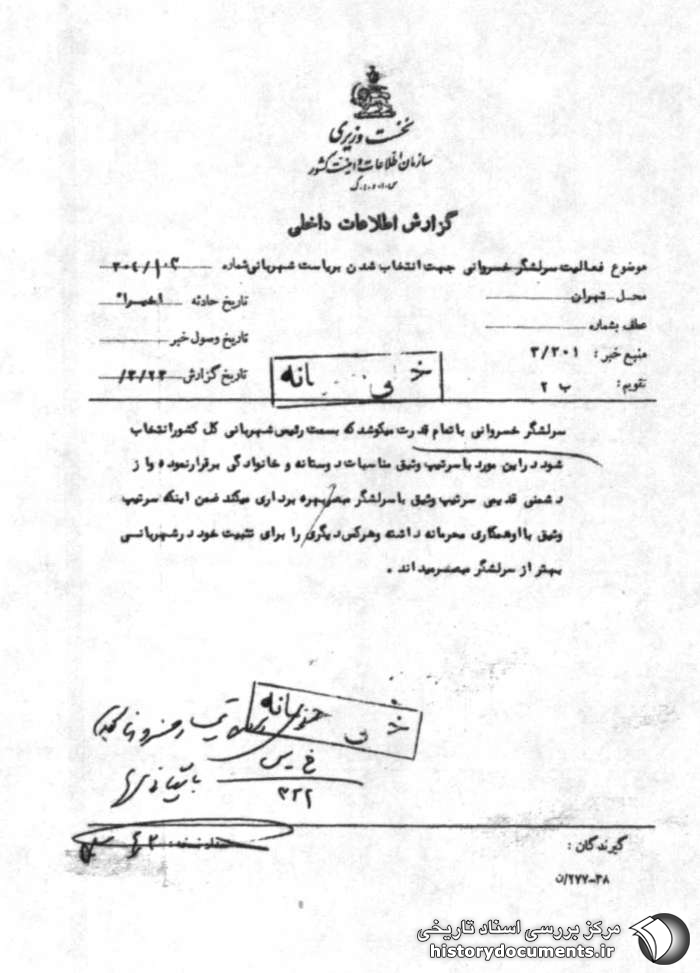 نخست وزیری
سازمان اطلاعات و امنیت کشور
س.ا.و.ا.ک
گزارش اطلاعات داخلی
موضوع فعالیت سرلشگر خسروانی جهت انتخاب شدن بریاست شهربانی شماره
محل تهران تاریخ حادثه اخیرا"
عطف بشماره تاریخ وصول خبر
منبع خبر : ۳/۳۰۱ تاریخ گزارش
تقویم : ب ۲
سرلشگر خسروانی با تمام قدرت میکوشد که بسمت رئیس شهربانی کل کشور انتخاب
شود در این مورد با سرتیپ وثیق مناسبات دوستانه و خانوادگی برقرار نموده و از
دشمنی قدیمی سرتیپ وثیق با سرلشگر مبصر بهره برداری میکند ضمن اینکه سرتیپ
وثیق با او همکاری محرمانه داشته و هرکس دیگری را برای تثبیت خود در شهربانی
بهتر از سرلشگر مبصر میداند .
۳۲۲
گیرندگان :
۲۷۷-۳۸/ن
مرکز بررسی اسناد تاریخی
historydocuments.ir